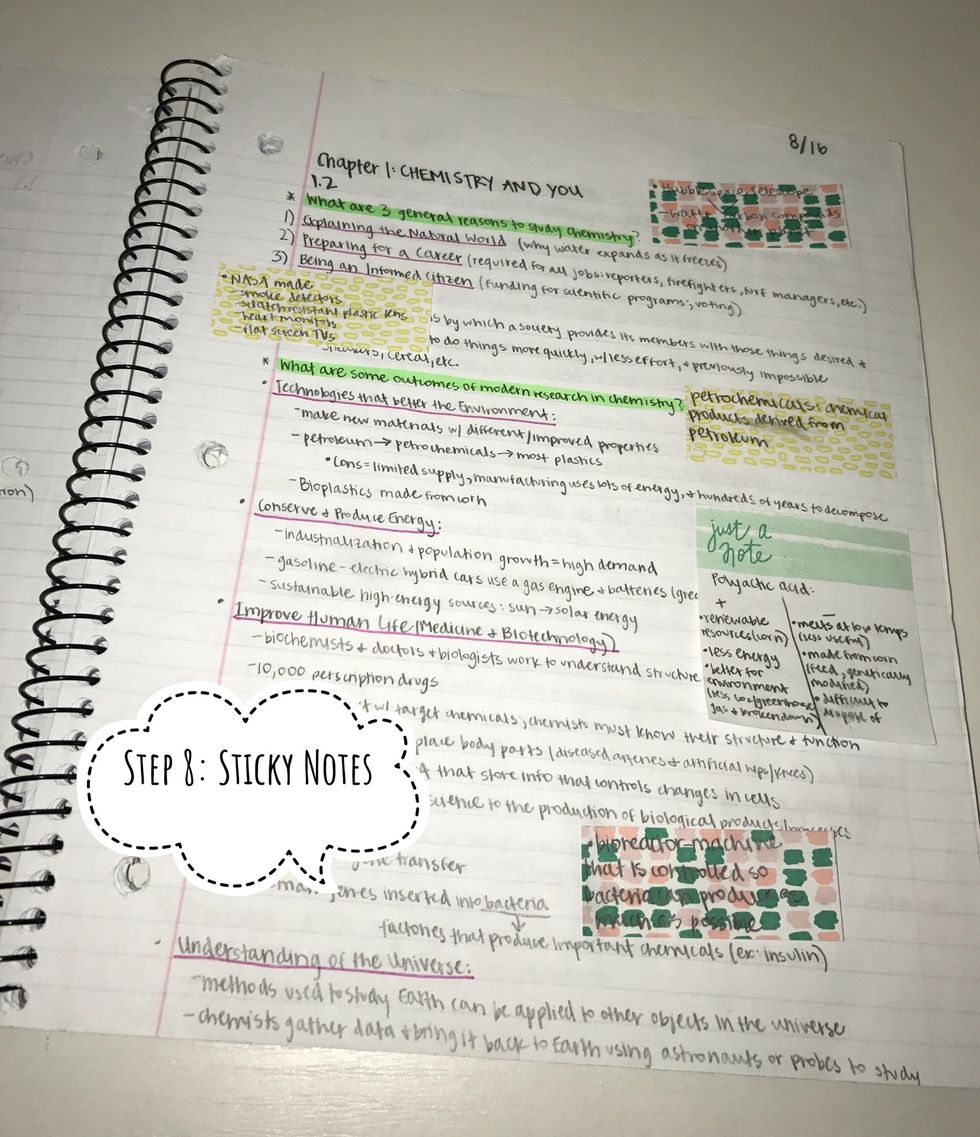 8/16
Chapter 1: CHEMISTRY AND YOU
1.2
* What are 3 general reasons to study chemistry?
1) Explaining the Natural World (why water expands as it freezes)
2) Preparing for a Career (required for all jobs: reporters, firefighters, turf managers, etc.)
3) Being an Informed Citizen (funding for scientific programs; voting)
• Hubble Space Telescope
- water carbon compounds
• NASA made
- smoke detectors
- scratch resistant plastic lens
- heart monitors
- flat screen TVs
is by which a society provides its members with those things desired +
to do things more quickly, w/ less effort, + previously impossible
cereal, etc.
* What are some outcomes of modern research in chemistry?
• Technologies that better the Environment:
- make new materials w/ different/improved properties
- petroleum → petrochemicals → most plastics
• Cons = limited supply, manufacturing uses lots of energy, + hundreds of years to decompose
- Bioplastics made from corn
petrochemicals: chemical
products derived from
petroleum
• Conserve + Produce Energy:
- industrialization + population growth = high demand
- gasoline-electric hybrid cars use a gas engine + batteries (gree
- sustainable high-energy sources: sun → solar energy
• Improve Human Life (Medicine + Biotechnology)
- biochemists + doctors + biologists work to understand structure
- 10,000 perscription drugs
w/ target chemicals; chemists must know their structure + function
place body parts (diseased arteries + artificial hips/knees)
A that store info that controls changes in cells
science to the production of biological products/
just a
note
Polyactic acid:
+
• renewable
resources (corn)
• less energy
• better for
environment
(less co2/greenhouse
gas + broken down)
-
• melts at low temps
(less useful)
• made from corn
(feed, genetically
modified)
• difficult to
dispose of
STEP 8: STICKY NOTES
transfer
genes inserted into bacteria
↓
factories that produce important chemicals (ex: insulin)
• bioreactor-machine
that is controlled so
bacteria can produce as
much as possible
• Understanding of the Universe:
- methods used to study Earth can be applied to other objects in the universe
- chemists gather data + bring it back to Earth using astronauts or probes to study